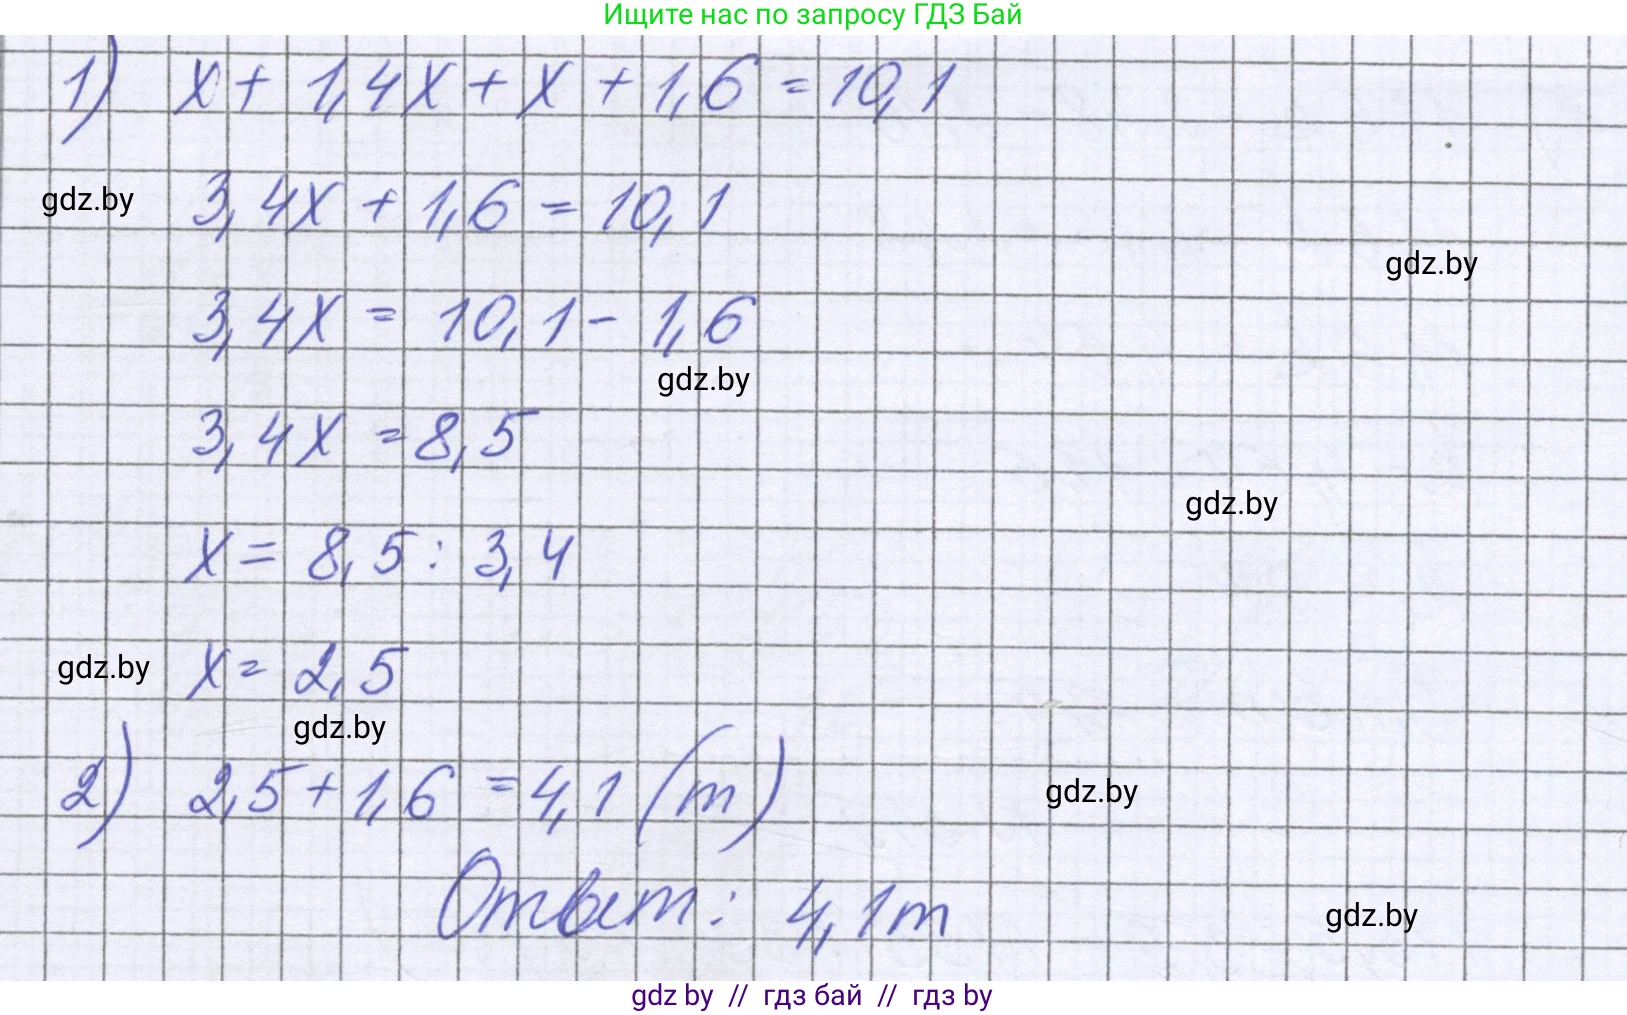 Ищите нас по запросу ГДЗ Бай
1) x + 1,4x + x + 1,6 = 10,1
gdz.by 3,4x + 1,6 = 10,1
gdz.by
3,4x = 10,1 - 1,6
gdz.by
3,4x = 8,5
gdz.by
x = 8,5 : 3,4
gdz.by x = 2,5
gdz.by
2) 2,5 + 1,6 = 4,1 (т)
gdz.by
Ответ: 4,1т
gdz.by
gdz by // гдз бай // гдз by